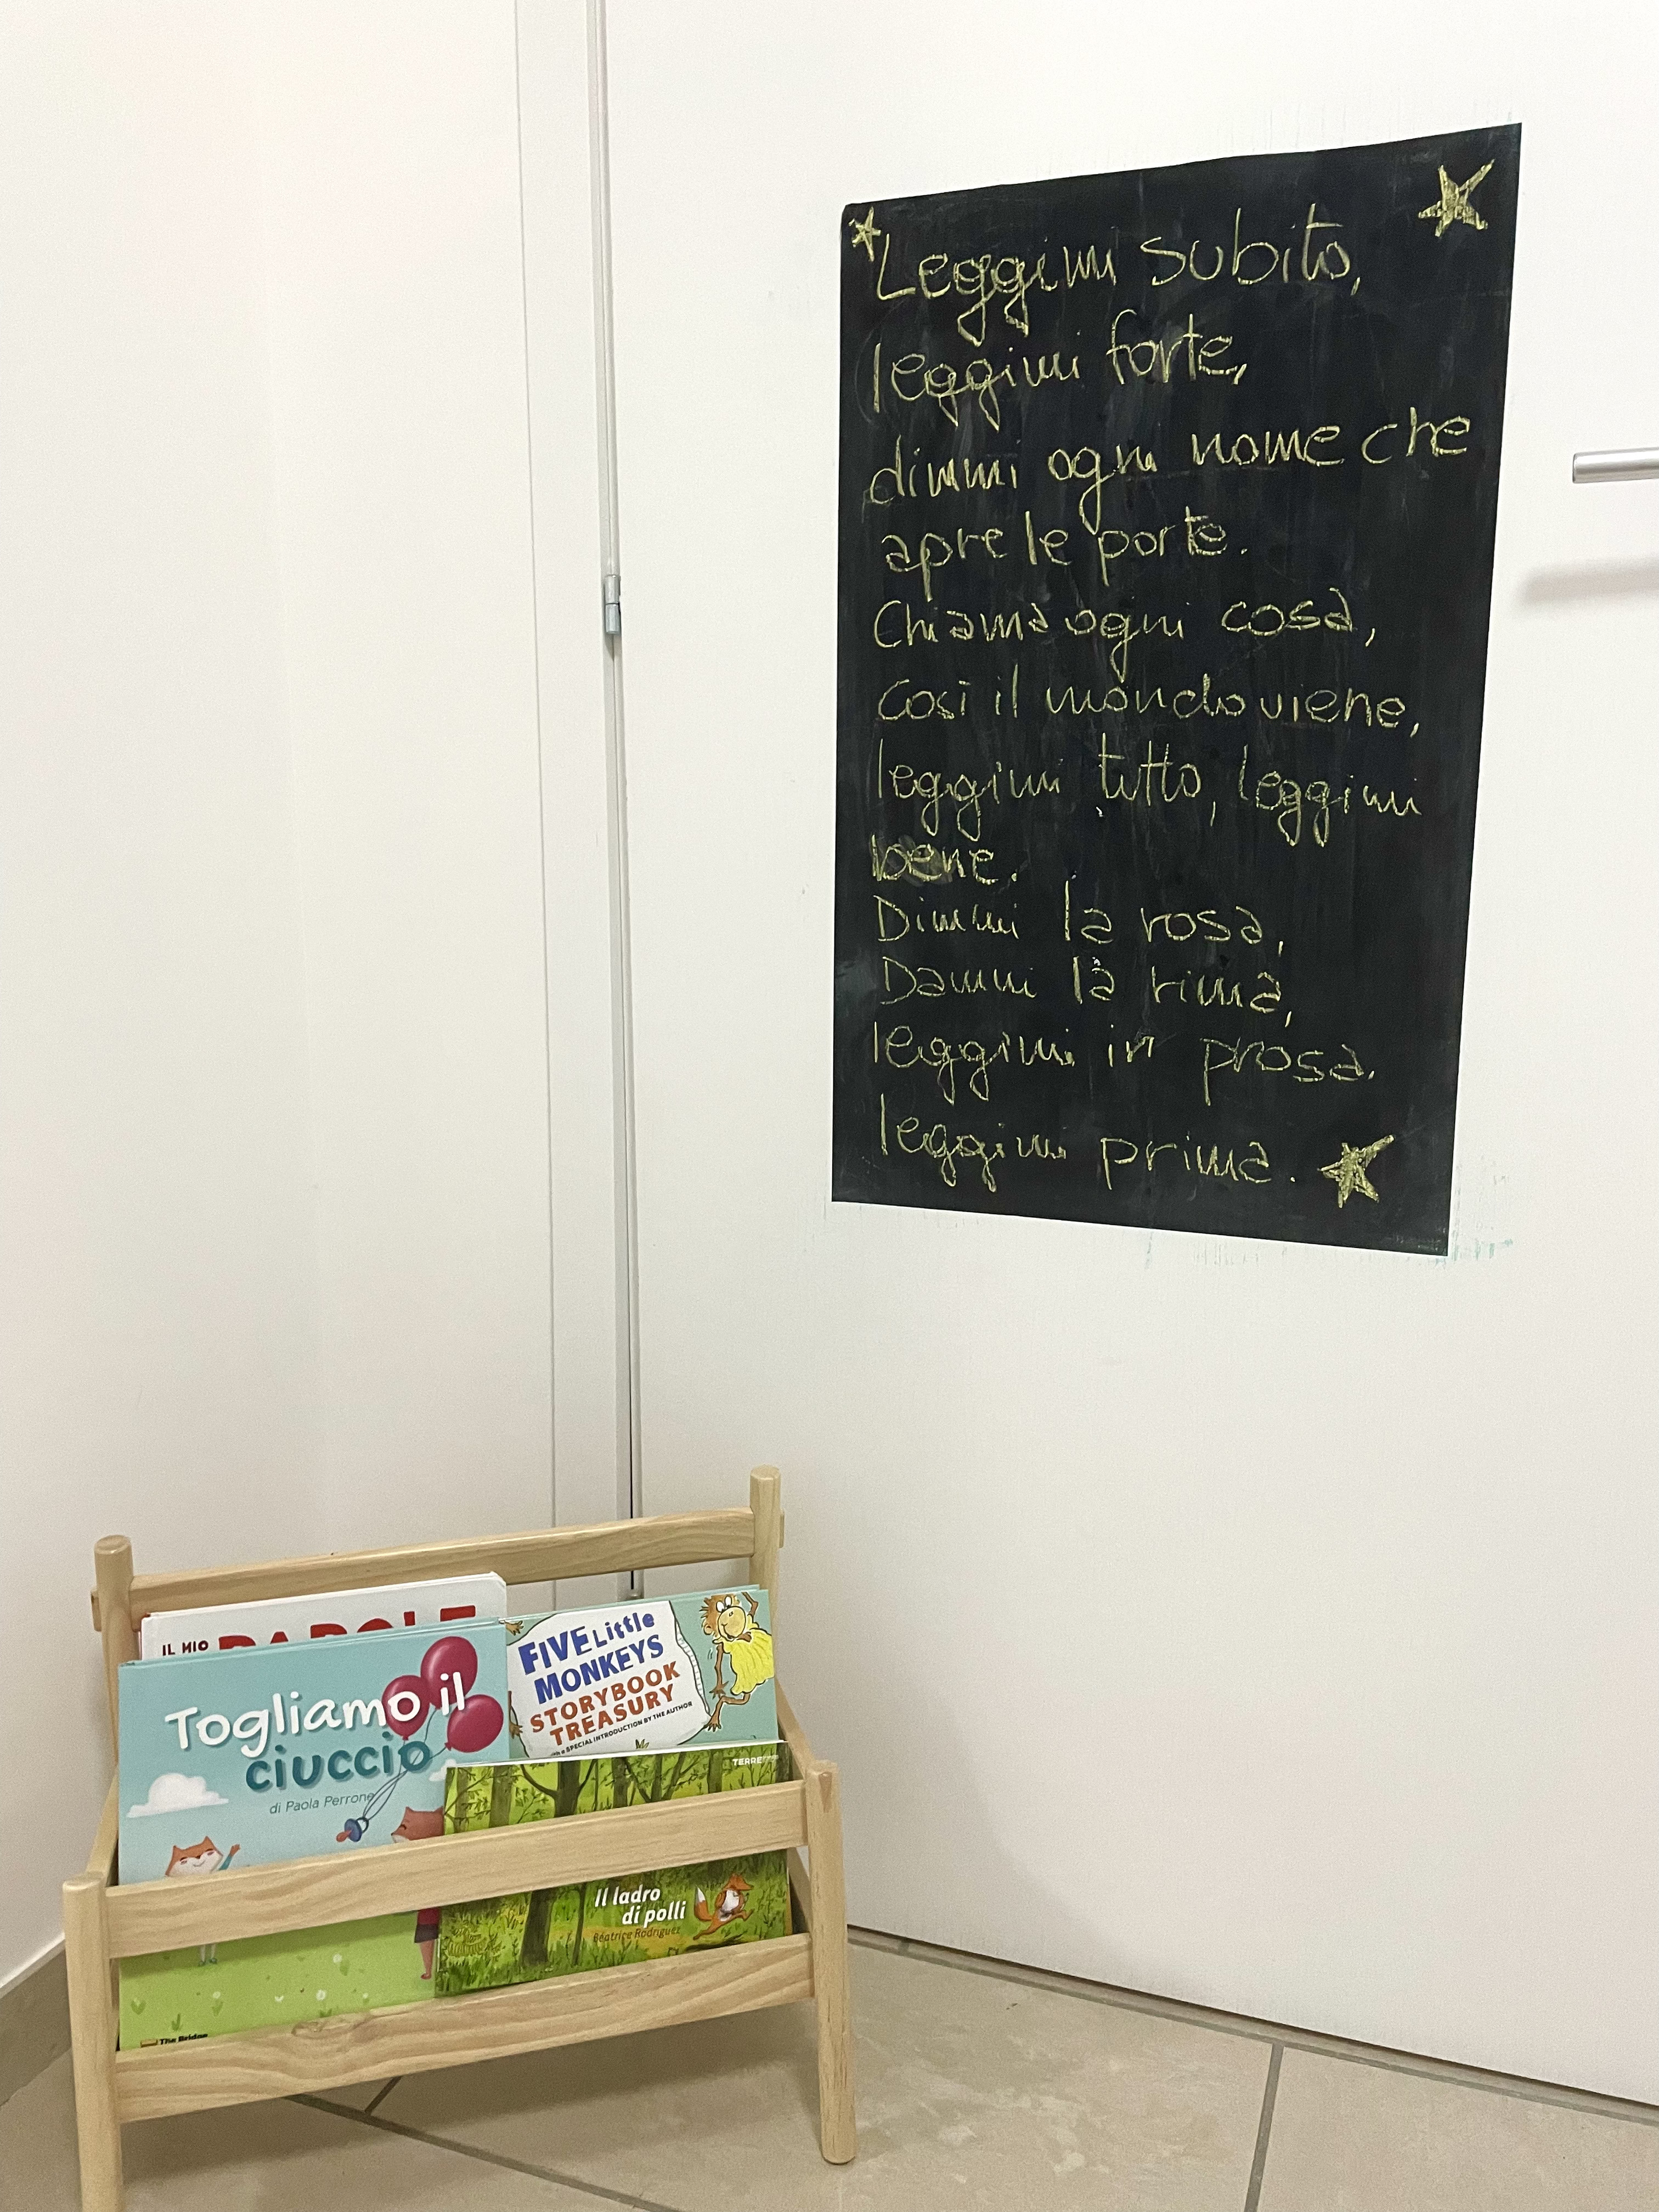 Leggimi subito,
leggimi forte,
dimmi ogni nome che
apre le porte.
Chiama ogni cosa,
così il mondo viene,
leggimi tutto, leggimi
bene.
Dimmi la rosa,
Dammi la rima,
leggimi in prosa.
leggimi prima.
IL MIO
PAROLE
Togliamo il
ciuccio
di Paola Perrone
The Bridge
FIVE Little
MONKEYS
STORYBOOK
TREASURY
with a SPECIAL INTRODUCTION BY THE AUTHOR
TERRE
Il ladro
di polli
Béatrice Rodriguez